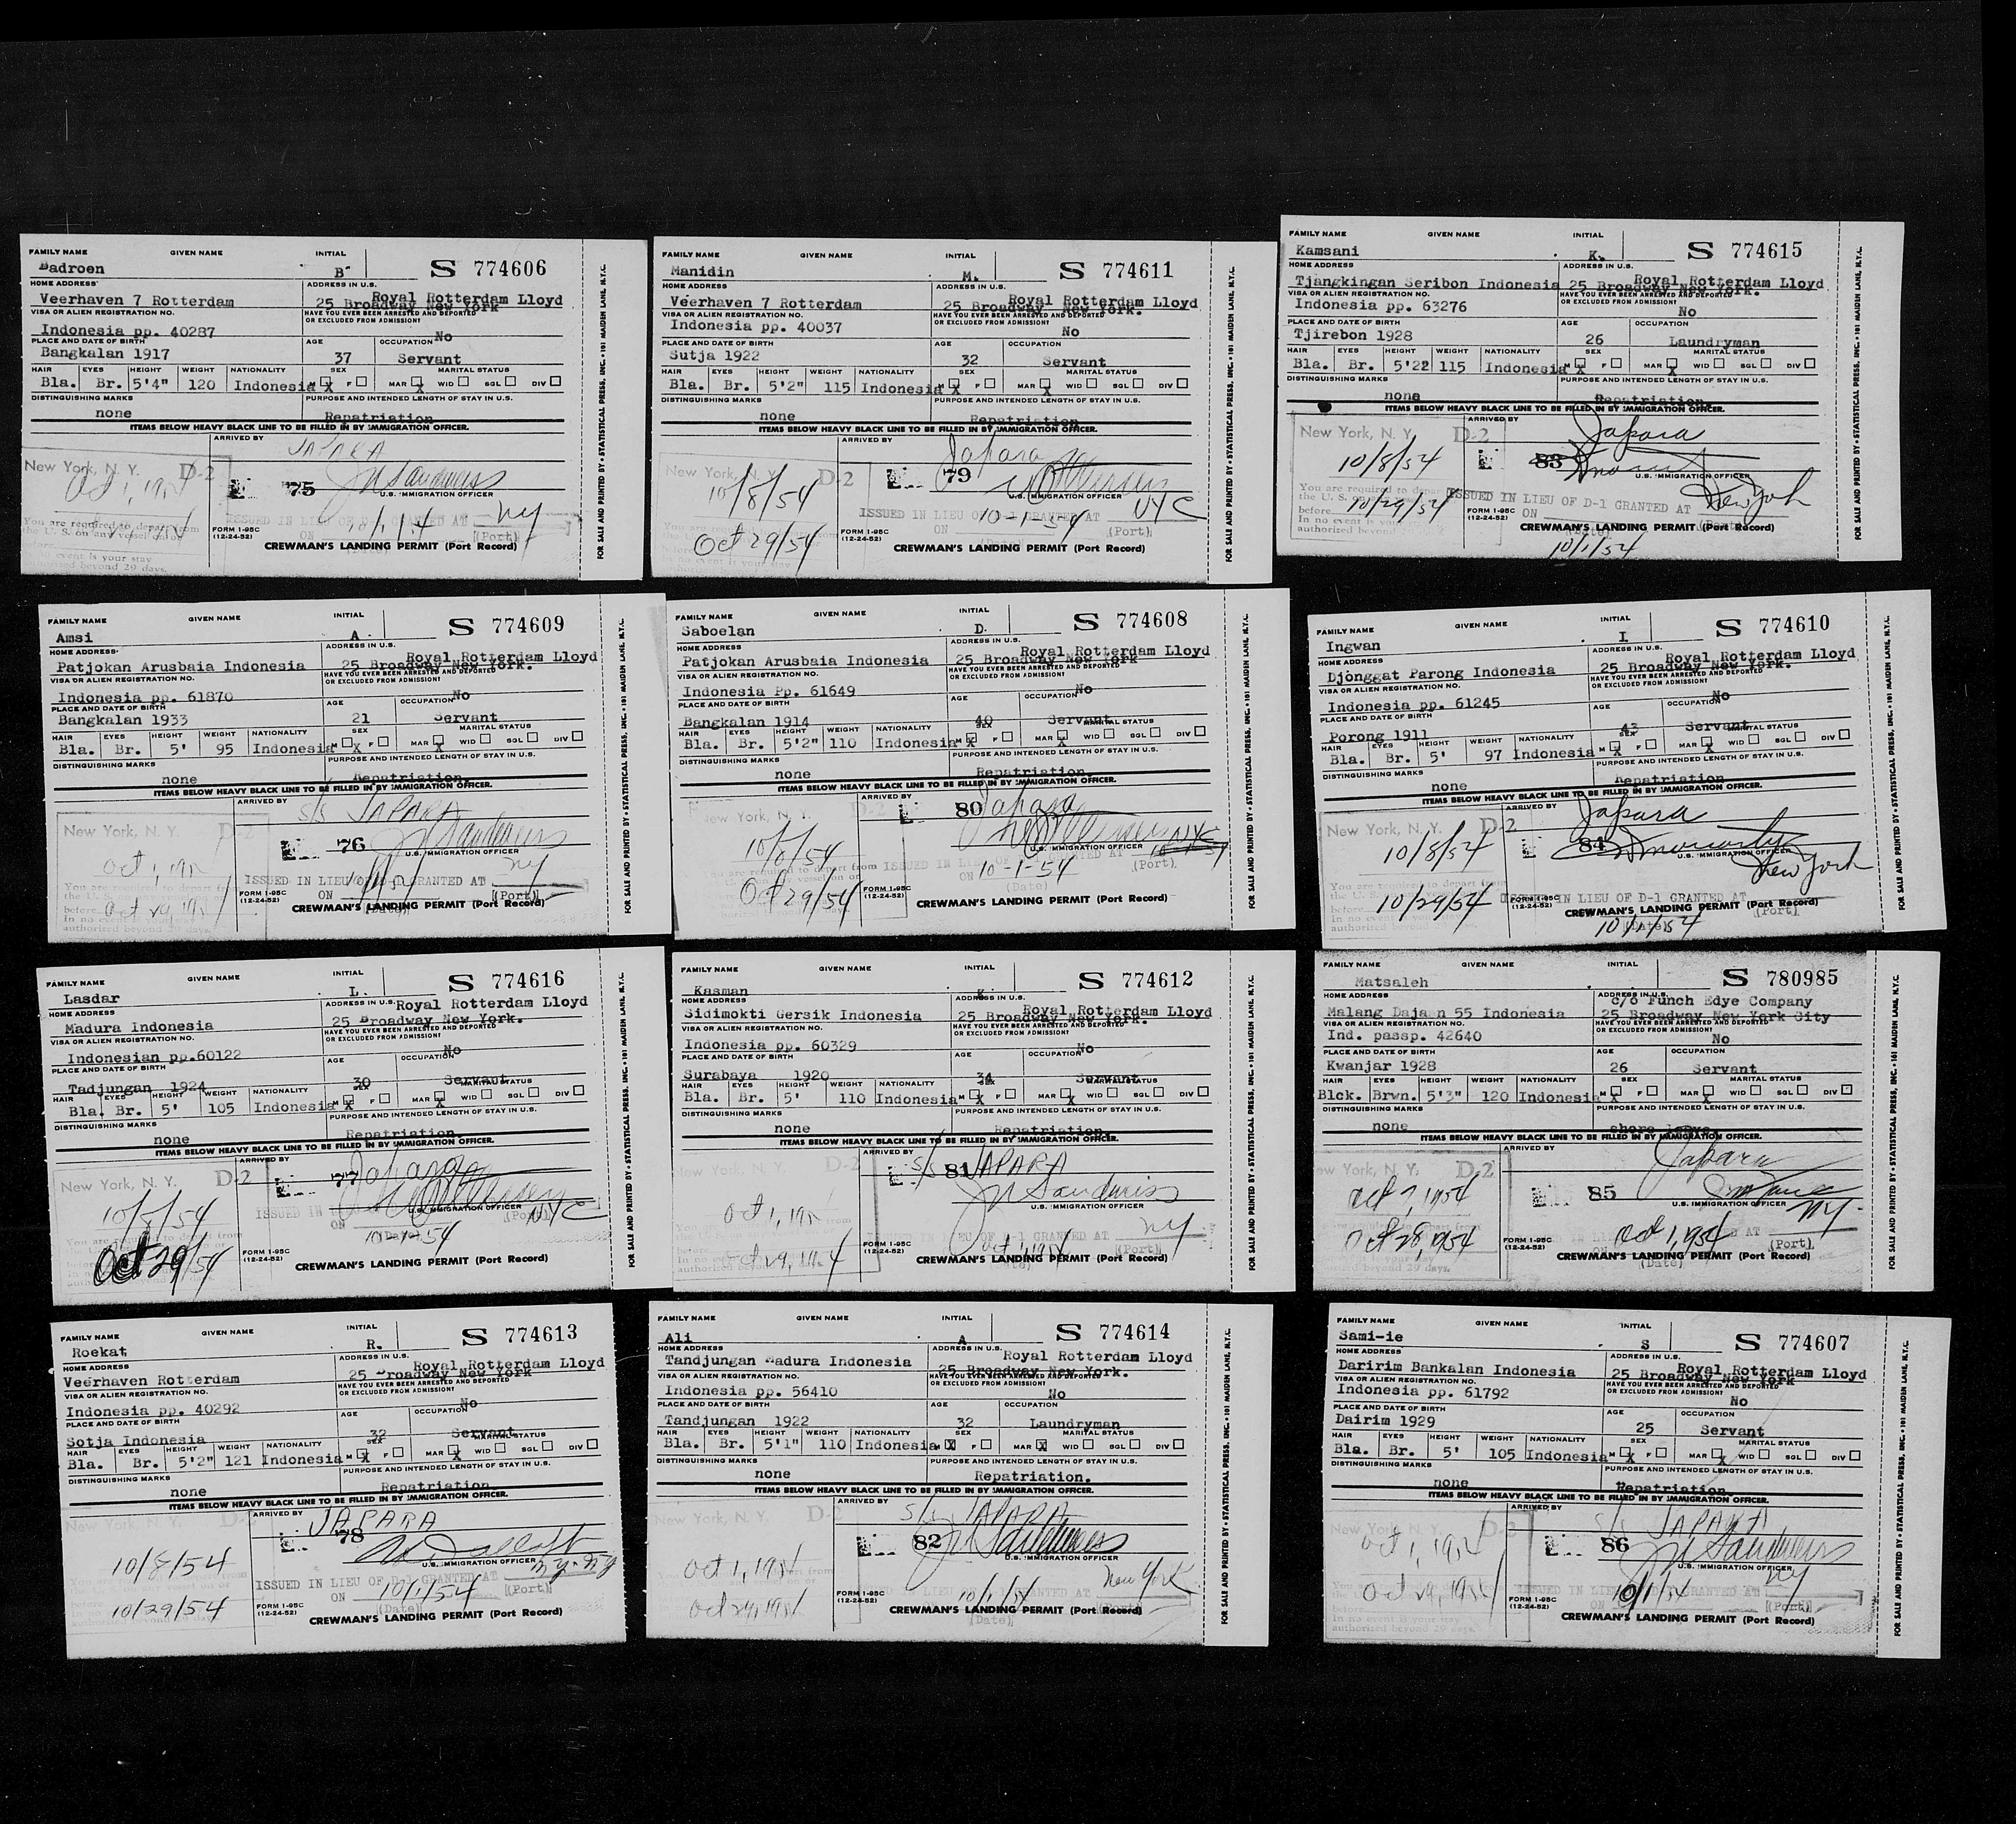 FAMILY NAME GIVEN NAME INITIAL
Badroen B S 774606
HOME ADDRESS ADDRESS IN U.S.
Royal Rotterdam Lloyd
Veerhaven 7 Rotterdam 25 Broadway New York
VISA OR ALIEN REGISTRATION NO. HAVE YOU EVER BEEN ARRESTED AND DEPORTED
OR EXCLUDED FROM ADMISSION?
Indonesia pp. 40287 No
PLACE AND DATE OF BIRTH AGE OCCUPATION
Bangkalan 1917 37 Servant
HAIR EYES HEIGHT WEIGHT NATIONALITY SEX MARITAL STATUS
Bla. Br. 5'4" 120 Indonesia M X F MAR X WID SGL DIV
DISTINGUISHING MARKS PURPOSE AND INTENDED LENGTH OF STAY IN U.S.
none Repatriation
ITEMS BELOW HEAVY BLACK LINE TO BE FILLED IN BY IMMIGRATION OFFICER.
ARRIVED BY
JAPARA
New York, N. Y. D-2
75
U.S. IMMIGRATION OFFICER
You are required to depart from
the U. S. on any vessel on or
ISSUED IN LIEU OF D-1 GRANTED AT NY
ON (Port)
FORM I-95C
(12-24-52)
CREWMAN'S LANDING PERMIT (Port Record)
event is your stay
authorized beyond 29 days.
FOR SALE AND PRINTED BY • STATISTICAL PRESS, INC. • 101 MAIDEN LANE, N.Y.C.
FAMILY NAME GIVEN NAME INITIAL
Manidin M. S 774611
HOME ADDRESS ADDRESS IN U.S.
Royal Rotterdam Lloyd
Veerhaven 7 Rotterdam 25 Broadway New York.
VISA OR ALIEN REGISTRATION NO. HAVE YOU EVER BEEN ARRESTED AND DEPORTED
OR EXCLUDED FROM ADMISSION?
Indonesia pp. 40037 No
PLACE AND DATE OF BIRTH AGE OCCUPATION
Sutja 1922 32 Servant
HAIR EYES HEIGHT WEIGHT NATIONALITY SEX MARITAL STATUS
Bla. Br. 5'2" 115 Indonesia M X F MAR X WID SGL DIV
DISTINGUISHING MARKS PURPOSE AND INTENDED LENGTH OF STAY IN U.S.
none Repatriation
ITEMS BELOW HEAVY BLACK LINE TO BE FILLED IN BY IMMIGRATION OFFICER.
ARRIVED BY
Japara
New York, N. Y. D-2
79
10/8/54
U.S. IMMIGRATION OFFICER
ISSUED IN LIEU OF D-1 GRANTED AT NYC
ON 10-1-54 (Port)
Oct 29/54
FORM I-95C
(12-24-52)
CREWMAN'S LANDING PERMIT (Port Record)
FOR SALE AND PRINTED BY • STATISTICAL PRESS, INC. • 101 MAIDEN LANE, N.Y.C.
FAMILY NAME GIVEN NAME INITIAL
Kamsani K. S 774615
HOME ADDRESS ADDRESS IN U.S.
Royal Rotterdam Lloyd
Tjangkingan Seribon Indonesia 25 Broadway New York.
VISA OR ALIEN REGISTRATION NO. HAVE YOU EVER BEEN ARRESTED AND DEPORTED
OR EXCLUDED FROM ADMISSION?
Indonesia pp. 63276 No
PLACE AND DATE OF BIRTH AGE OCCUPATION
Tjirebon 1928 26 Laundryman
HAIR EYES HEIGHT WEIGHT NATIONALITY SEX MARITAL STATUS
Bla. Br. 5'22 115 Indonesia M X F MAR X WID SGL DIV
DISTINGUISHING MARKS PURPOSE AND INTENDED LENGTH OF STAY IN U.S.
none Repatriation.
ITEMS BELOW HEAVY BLACK LINE TO BE FILLED IN BY IMMIGRATION OFFICER.
ARRIVED BY
Japara
New York, N. Y. D-2
10/8/54 83
U.S. IMMIGRATION OFFICER
You are required to depart
the U. S.
before 10/29/54
In no event is your
authorized beyond
ISSUED IN LIEU OF D-1 GRANTED AT New York
ON
FORM I-95C
(12-24-52)
CREWMAN'S LANDING PERMIT (Port Record)
10/1/54
FOR SALE AND PRINTED BY • STATISTICAL PRESS, INC. • 101 MAIDEN LANE, N.Y.C.
FAMILY NAME GIVEN NAME INITIAL
Amsi A. S 774609
HOME ADDRESS ADDRESS IN U.S.
Royal Rotterdam Lloyd
Patjokan Arusbaia Indonesia 25 Broadway New York.
VISA OR ALIEN REGISTRATION NO. HAVE YOU EVER BEEN ARRESTED AND DEPORTED
OR EXCLUDED FROM ADMISSION?
Indonesia pp. 61870 No
PLACE AND DATE OF BIRTH AGE OCCUPATION
Bangkalan 1933 21 Servant
HAIR EYES HEIGHT WEIGHT NATIONALITY SEX MARITAL STATUS
Bla. Br. 5' 95 Indonesia M X F MAR X WID SGL DIV
DISTINGUISHING MARKS PURPOSE AND INTENDED LENGTH OF STAY IN U.S.
none Repatriation.
ITEMS BELOW HEAVY BLACK LINE TO BE FILLED IN BY IMMIGRATION OFFICER.
ARRIVED BY
S/S JAPARA
New York, N. Y. D-2
76
U.S. IMMIGRATION OFFICER
ISSUED IN LIEU OF D-1 GRANTED AT NY
ON (Date) (Port)
authorized beyond 29 days.
FORM I-95C
(12-24-52)
CREWMAN'S LANDING PERMIT (Port Record)
FOR SALE AND PRINTED BY • STATISTICAL PRESS, INC. • 101 MAIDEN LANE, N.Y.C.
FAMILY NAME GIVEN NAME INITIAL
Saboelan D. S 774608
HOME ADDRESS ADDRESS IN U.S.
Royal Rotterdam Lloyd
Patjokan Arusbaia Indonesia 25 Broadway New York
VISA OR ALIEN REGISTRATION NO. HAVE YOU EVER BEEN ARRESTED AND DEPORTED
OR EXCLUDED FROM ADMISSION?
Indonesia Pp. 61649 No
PLACE AND DATE OF BIRTH AGE OCCUPATION
Bangkalan 1914 40 Servant
HAIR EYES HEIGHT WEIGHT NATIONALITY SEX MARITAL STATUS
Bla. Br. 5'2" 110 Indonesia M X F MAR X WID SGL DIV
DISTINGUISHING MARKS PURPOSE AND INTENDED LENGTH OF STAY IN U.S.
none Repatriation.
ITEMS BELOW HEAVY BLACK LINE TO BE FILLED IN BY IMMIGRATION OFFICER.
ARRIVED BY
80 Japara
New York, N. Y.
10/8/54
U.S. IMMIGRATION OFFICER
ISSUED IN LIEU OF D-1 GRANTED AT NYC
ON 10-1-54 (Port)
(Date)
Oct 29/54
FORM I-95C
(12-24-52)
CREWMAN'S LANDING PERMIT (Port Record)
FOR SALE AND PRINTED BY • STATISTICAL PRESS, INC. • 101 MAIDEN LANE, N.Y.C.
FAMILY NAME GIVEN NAME INITIAL
Ingwan I S 774610
HOME ADDRESS ADDRESS IN U.S.
Royal Rotterdam Lloyd
Djonggat Parong Indonesia 25 Broadway New York.
VISA OR ALIEN REGISTRATION NO. HAVE YOU EVER BEEN ARRESTED AND DEPORTED
OR EXCLUDED FROM ADMISSION?
Indonesia pp. 61245 No
PLACE AND DATE OF BIRTH AGE OCCUPATION
Porong 1911 43 Servant
HAIR EYES HEIGHT WEIGHT NATIONALITY SEX MARITAL STATUS
Bla. Br. 5' 97 Indonesia M X F MAR X WID SGL DIV
DISTINGUISHING MARKS PURPOSE AND INTENDED LENGTH OF STAY IN U.S.
none Repatriation
ITEMS BELOW HEAVY BLACK LINE TO BE FILLED IN BY IMMIGRATION OFFICER.
ARRIVED BY
Japara
New York, N. Y. D-2
10/8/54 84
U.S. IMMIGRATION OFFICER
New York
10/29/54
ISSUED IN LIEU OF D-1 GRANTED AT
FORM I-95C
(12-24-52)
CREWMAN'S LANDING PERMIT (Port Record)
10/1/54 (Port)
authorized beyond
FOR SALE AND PRINTED BY • STATISTICAL PRESS, INC. • 101 MAIDEN LANE, N.Y.C.
FAMILY NAME GIVEN NAME INITIAL
Lasdar L. S 774616
HOME ADDRESS ADDRESS IN U.S.
Royal Rotterdam Lloyd
Madura Indonesia 25 Broadway New York.
VISA OR ALIEN REGISTRATION NO. HAVE YOU EVER BEEN ARRESTED AND DEPORTED
OR EXCLUDED FROM ADMISSION?
Indonesian pp.60122 No
PLACE AND DATE OF BIRTH AGE OCCUPATION
Tadjungan 1924 30 Servant
HAIR EYES HEIGHT WEIGHT NATIONALITY SEX MARITAL STATUS
Bla. Br. 5' 105 Indonesia M X F MAR X WID SGL DIV
DISTINGUISHING MARKS PURPOSE AND INTENDED LENGTH OF STAY IN U.S.
none Repatriation.
ITEMS BELOW HEAVY BLACK LINE TO BE FILLED IN BY IMMIGRATION OFFICER.
ARRIVED BY
Japara
New York, N. Y. D-2
77
10/8/54
U.S. IMMIGRATION OFFICER
ISSUED IN NYC
ON 10-1-54
Oct 29/54
FORM I-95C
(12-24-52)
CREWMAN'S LANDING PERMIT (Port Record)
FOR SALE AND PRINTED BY • STATISTICAL PRESS, INC. • 101 MAIDEN LANE, N.Y.C.
FAMILY NAME GIVEN NAME INITIAL
Kasman K. S 774612
HOME ADDRESS ADDRESS IN U.S.
Royal Rotterdam Lloyd
Sidimokti Gersik Indonesia 25 Broadway New York.
VISA OR ALIEN REGISTRATION NO. HAVE YOU EVER BEEN ARRESTED AND DEPORTED
OR EXCLUDED FROM ADMISSION?
Indonesia pp. 60329 No
PLACE AND DATE OF BIRTH AGE OCCUPATION
Surabaya 1920 34 Servant
HAIR EYES HEIGHT WEIGHT NATIONALITY SEX MARITAL STATUS
Bla. Br. 5' 110 Indonesia M X F MAR X WID SGL DIV
DISTINGUISHING MARKS PURPOSE AND INTENDED LENGTH OF STAY IN U.S.
none Repatriation.
ITEMS BELOW HEAVY BLACK LINE TO BE FILLED IN BY IMMIGRATION OFFICER.
ARRIVED BY
S/S JAPARA
New York, N. Y. D-2
81
U.S. IMMIGRATION OFFICER
IN LIEU OF D-1 GRANTED AT NY
(Port)
FORM I-95C
(12-24-52)
CREWMAN'S LANDING PERMIT (Port Record)
FOR SALE AND PRINTED BY • STATISTICAL PRESS, INC. • 101 MAIDEN LANE, N.Y.C.
FAMILY NAME GIVEN NAME INITIAL
Matsaleh S 780985
HOME ADDRESS ADDRESS IN U.S.
c/o Funch Edye Company
Malang Dajaan 55 Indonesia 25 Broadway New York City
VISA OR ALIEN REGISTRATION NO. HAVE YOU EVER BEEN ARRESTED AND DEPORTED
OR EXCLUDED FROM ADMISSION?
Ind. passp. 42640 No
PLACE AND DATE OF BIRTH AGE OCCUPATION
Kwanjar 1928 26 Servant
HAIR EYES HEIGHT WEIGHT NATIONALITY SEX MARITAL STATUS
Blck. Brwn. 5'3" 120 Indonesia M X F MAR X WID SGL DIV
DISTINGUISHING MARKS PURPOSE AND INTENDED LENGTH OF STAY IN U.S.
none shore leave.
ITEMS BELOW HEAVY BLACK LINE TO BE FILLED IN BY IMMIGRATION OFFICER.
ARRIVED BY
Japara
New York, N. Y. D-2
Oct 7, 1954 85
U.S. IMMIGRATION OFFICER
NY.
Oct 28, 1954 Oct 1, 1954
(Port)
FORM I-95C
(12-24-52)
CREWMAN'S LANDING PERMIT (Port Record)
(Date)
beyond 29 days.
FOR SALE AND PRINTED BY • STATISTICAL PRESS, INC. • 101 MAIDEN LANE, N.Y.C.
FAMILY NAME GIVEN NAME INITIAL
Roekat R. S 774613
HOME ADDRESS ADDRESS IN U.S.
Royal Rotterdam Lloyd
Veerhaven Rotterdam 25 Broadway New York
VISA OR ALIEN REGISTRATION NO. HAVE YOU EVER BEEN ARRESTED AND DEPORTED
OR EXCLUDED FROM ADMISSION?
Indonesia pp. 40292 No
PLACE AND DATE OF BIRTH AGE OCCUPATION
Sotja Indonesia 32 Servant
HAIR EYES HEIGHT WEIGHT NATIONALITY SEX MARITAL STATUS
Bla. Br. 5'2" 121 Indonesia M X F MAR X WID SGL DIV
DISTINGUISHING MARKS PURPOSE AND INTENDED LENGTH OF STAY IN U.S.
none Repatriation
ITEMS BELOW HEAVY BLACK LINE TO BE FILLED IN BY IMMIGRATION OFFICER.
ARRIVED BY
JAPARA
New York, N. Y. D-2
78
10/8/54
U.S. IMMIGRATION OFFICER
ISSUED IN LIEU OF D-1 GRANTED AT
ON 10/1/54 (Port)
(Date)
10/29/54
FORM I-95C
(12-24-52)
CREWMAN'S LANDING PERMIT (Port Record)
FAMILY NAME GIVEN NAME INITIAL
Ali A S 774614
HOME ADDRESS ADDRESS IN U.S.
Royal Rotterdam Lloyd
Tandjungan Madura Indonesia 25 Broadway New York.
VISA OR ALIEN REGISTRATION NO. HAVE YOU EVER BEEN ARRESTED AND DEPORTED
OR EXCLUDED FROM ADMISSION?
Indonesia pp. 56410 No
PLACE AND DATE OF BIRTH AGE OCCUPATION
Tandjungan 1922 32 Laundryman
HAIR EYES HEIGHT WEIGHT NATIONALITY SEX MARITAL STATUS
Bla. Br. 5'1" 110 Indonesia M X F MAR X WID SGL DIV
DISTINGUISHING MARKS PURPOSE AND INTENDED LENGTH OF STAY IN U.S.
none Repatriation.
ITEMS BELOW HEAVY BLACK LINE TO BE FILLED IN BY IMMIGRATION OFFICER.
ARRIVED BY
S/S JAPARA
New York, N. Y. D-2
82
U.S. IMMIGRATION OFFICER
New York
10/1/54
FORM I-95C
(12-24-52)
CREWMAN'S LANDING PERMIT (Port Record)
(Date)
FOR SALE AND PRINTED BY • STATISTICAL PRESS, INC. • 101 MAIDEN LANE, N.Y.C.
FAMILY NAME GIVEN NAME INITIAL
Sami-ie S S 774607
HOME ADDRESS ADDRESS IN U.S.
Royal Rotterdam Lloyd
Daririm Bankalan Indonesia 25 Broadway New York
VISA OR ALIEN REGISTRATION NO. HAVE YOU EVER BEEN ARRESTED AND DEPORTED
OR EXCLUDED FROM ADMISSION?
Indonesia pp. 61792 No
PLACE AND DATE OF BIRTH AGE OCCUPATION
Dairim 1929 25 Servant
HAIR EYES HEIGHT WEIGHT NATIONALITY SEX MARITAL STATUS
Bla. Br. 5' 105 Indonesia M X F MAR X WID SGL DIV
DISTINGUISHING MARKS PURPOSE AND INTENDED LENGTH OF STAY IN U.S.
none Repatriation.
ITEMS BELOW HEAVY BLACK LINE TO BE FILLED IN BY IMMIGRATION OFFICER.
ARRIVED BY
S/S JAPARA
New York, N. Y. D-2
86
U.S. IMMIGRATION OFFICER
NY
10/1/54 (Port)
FORM I-95C
(12-24-52)
CREWMAN'S LANDING PERMIT (Port Record)
authorized beyond 29 days.
FOR SALE AND PRINTED BY • STATISTICAL PRESS, INC. • 101 MAIDEN LANE, N.Y.C.